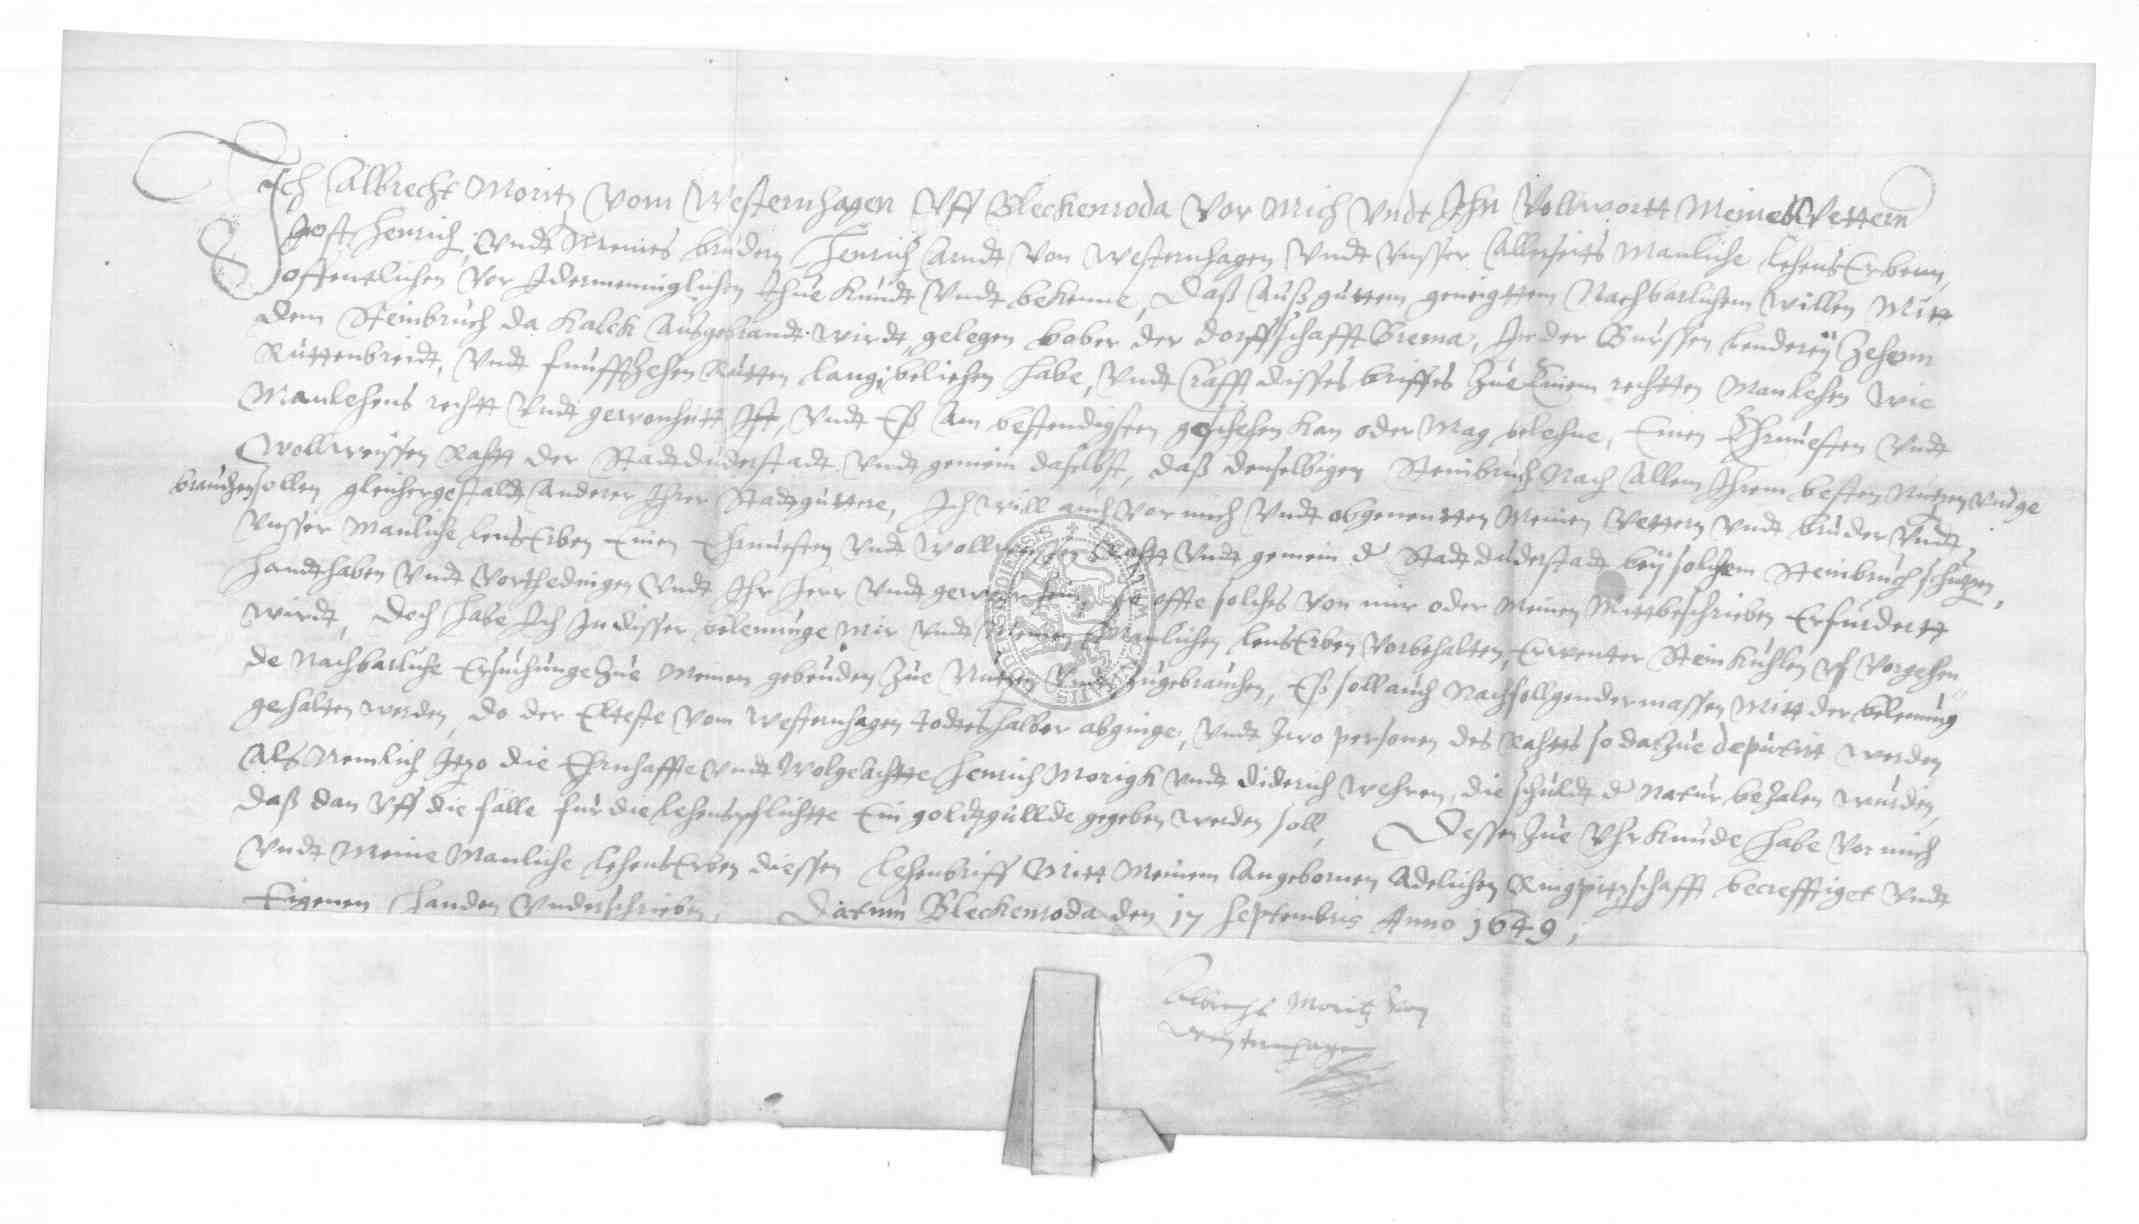 Ich Albrecht Moritz Vom Westernhagen Uff Bleckenroda Vor Mich Undt Ihn Vollwortt Meines Vettern
Jost Henrich, Undt Meines brudern Henrich Arndt von Westernhagen Undt Unsser Allerseits Manliche LehensErbenn,
offentlichen Vor Idermenniglichen thue kundt Undt bekenne, Daß Auß guttem geneigttem Nachbarlichem willen Mitt
dem Steinbruch da Kalck Ausgebrandt wirdt, gelegen bober der dorffschafft Brema, In der Burssen lenderey Zehenn
Ruttenbreidt, Undt funffzehen Rutten lang, beliehen habe, Undt Crafft disses briffes Zue Einem rechtten Manlehen wie
Manlehens rechtt Undt gewonheitt Ist Undt Eß Am bestendigsten geschehen kan oder Mag belehne, Einen Ehrnuesten Undt
Wollweyssen Rahtt der Stadt duderstadt Undt gemein daselbst, daß denselbigen Steinbruch Nach Allem Ihrem besten Nutzen Undt ge
brauchen sollen gleichergestaldt Anderer Ihrer Stadtguttere, Ich will auch vor mich Undt obgenentten Meinen Vettern Undt bruder Undt
Unsser Manliche lensErben Einen Ehrnuesten Undt Wollweyssen Rahtt Undt gemein d Stadt duderstadt bey solchem Steinbruch schutzen,
handthaben Undt Vorthedingen Undt Ihr Herr Undt gewehr sein, so offte solches von mir oder Meinen Mittbeschrieben Erfurdertt
wirdt, Doch habe Ich In disser belennunge Mir Undt Meinen Manlichen lensErben Vorbehalten, Erwenter Stein Kuhlen uf Vorgehen
de Nachbarliche Ersuchunge Zue Meinen gebeuden Zue Nutzen Undt Zugebrauchen, Eß soll auch Nachfollgendermassen Mitt der belennung
gehalten werden, do der Elteste Vom Westernhagen todtes halber abginge, Undt Zwo personen des Rahtts so dazue deputirt werden
Als Nemlich Itzo die Ehrnhaffte Undt Wolgeachtte Henrich Morigk Undt Diderich Wehren, die schuldt d Natur behalen wurden,
daß dan Uff die falle fur die lehenspflichtte Ein goldtgullde gegeben werden soll, Dessen Zue Uhrkunde habe Vor mich
Undt Meine Manliche lehensErben diessen Lehenbriff Mitt Meinem Angebornen Adelichen Ringpittschafft becrefftiget Undt
Eigenen Handen Underschrieben, Datum Bleckenroda den 17 Septembris Anno 1649,
Albrecht Moritz Von
Westernhagen